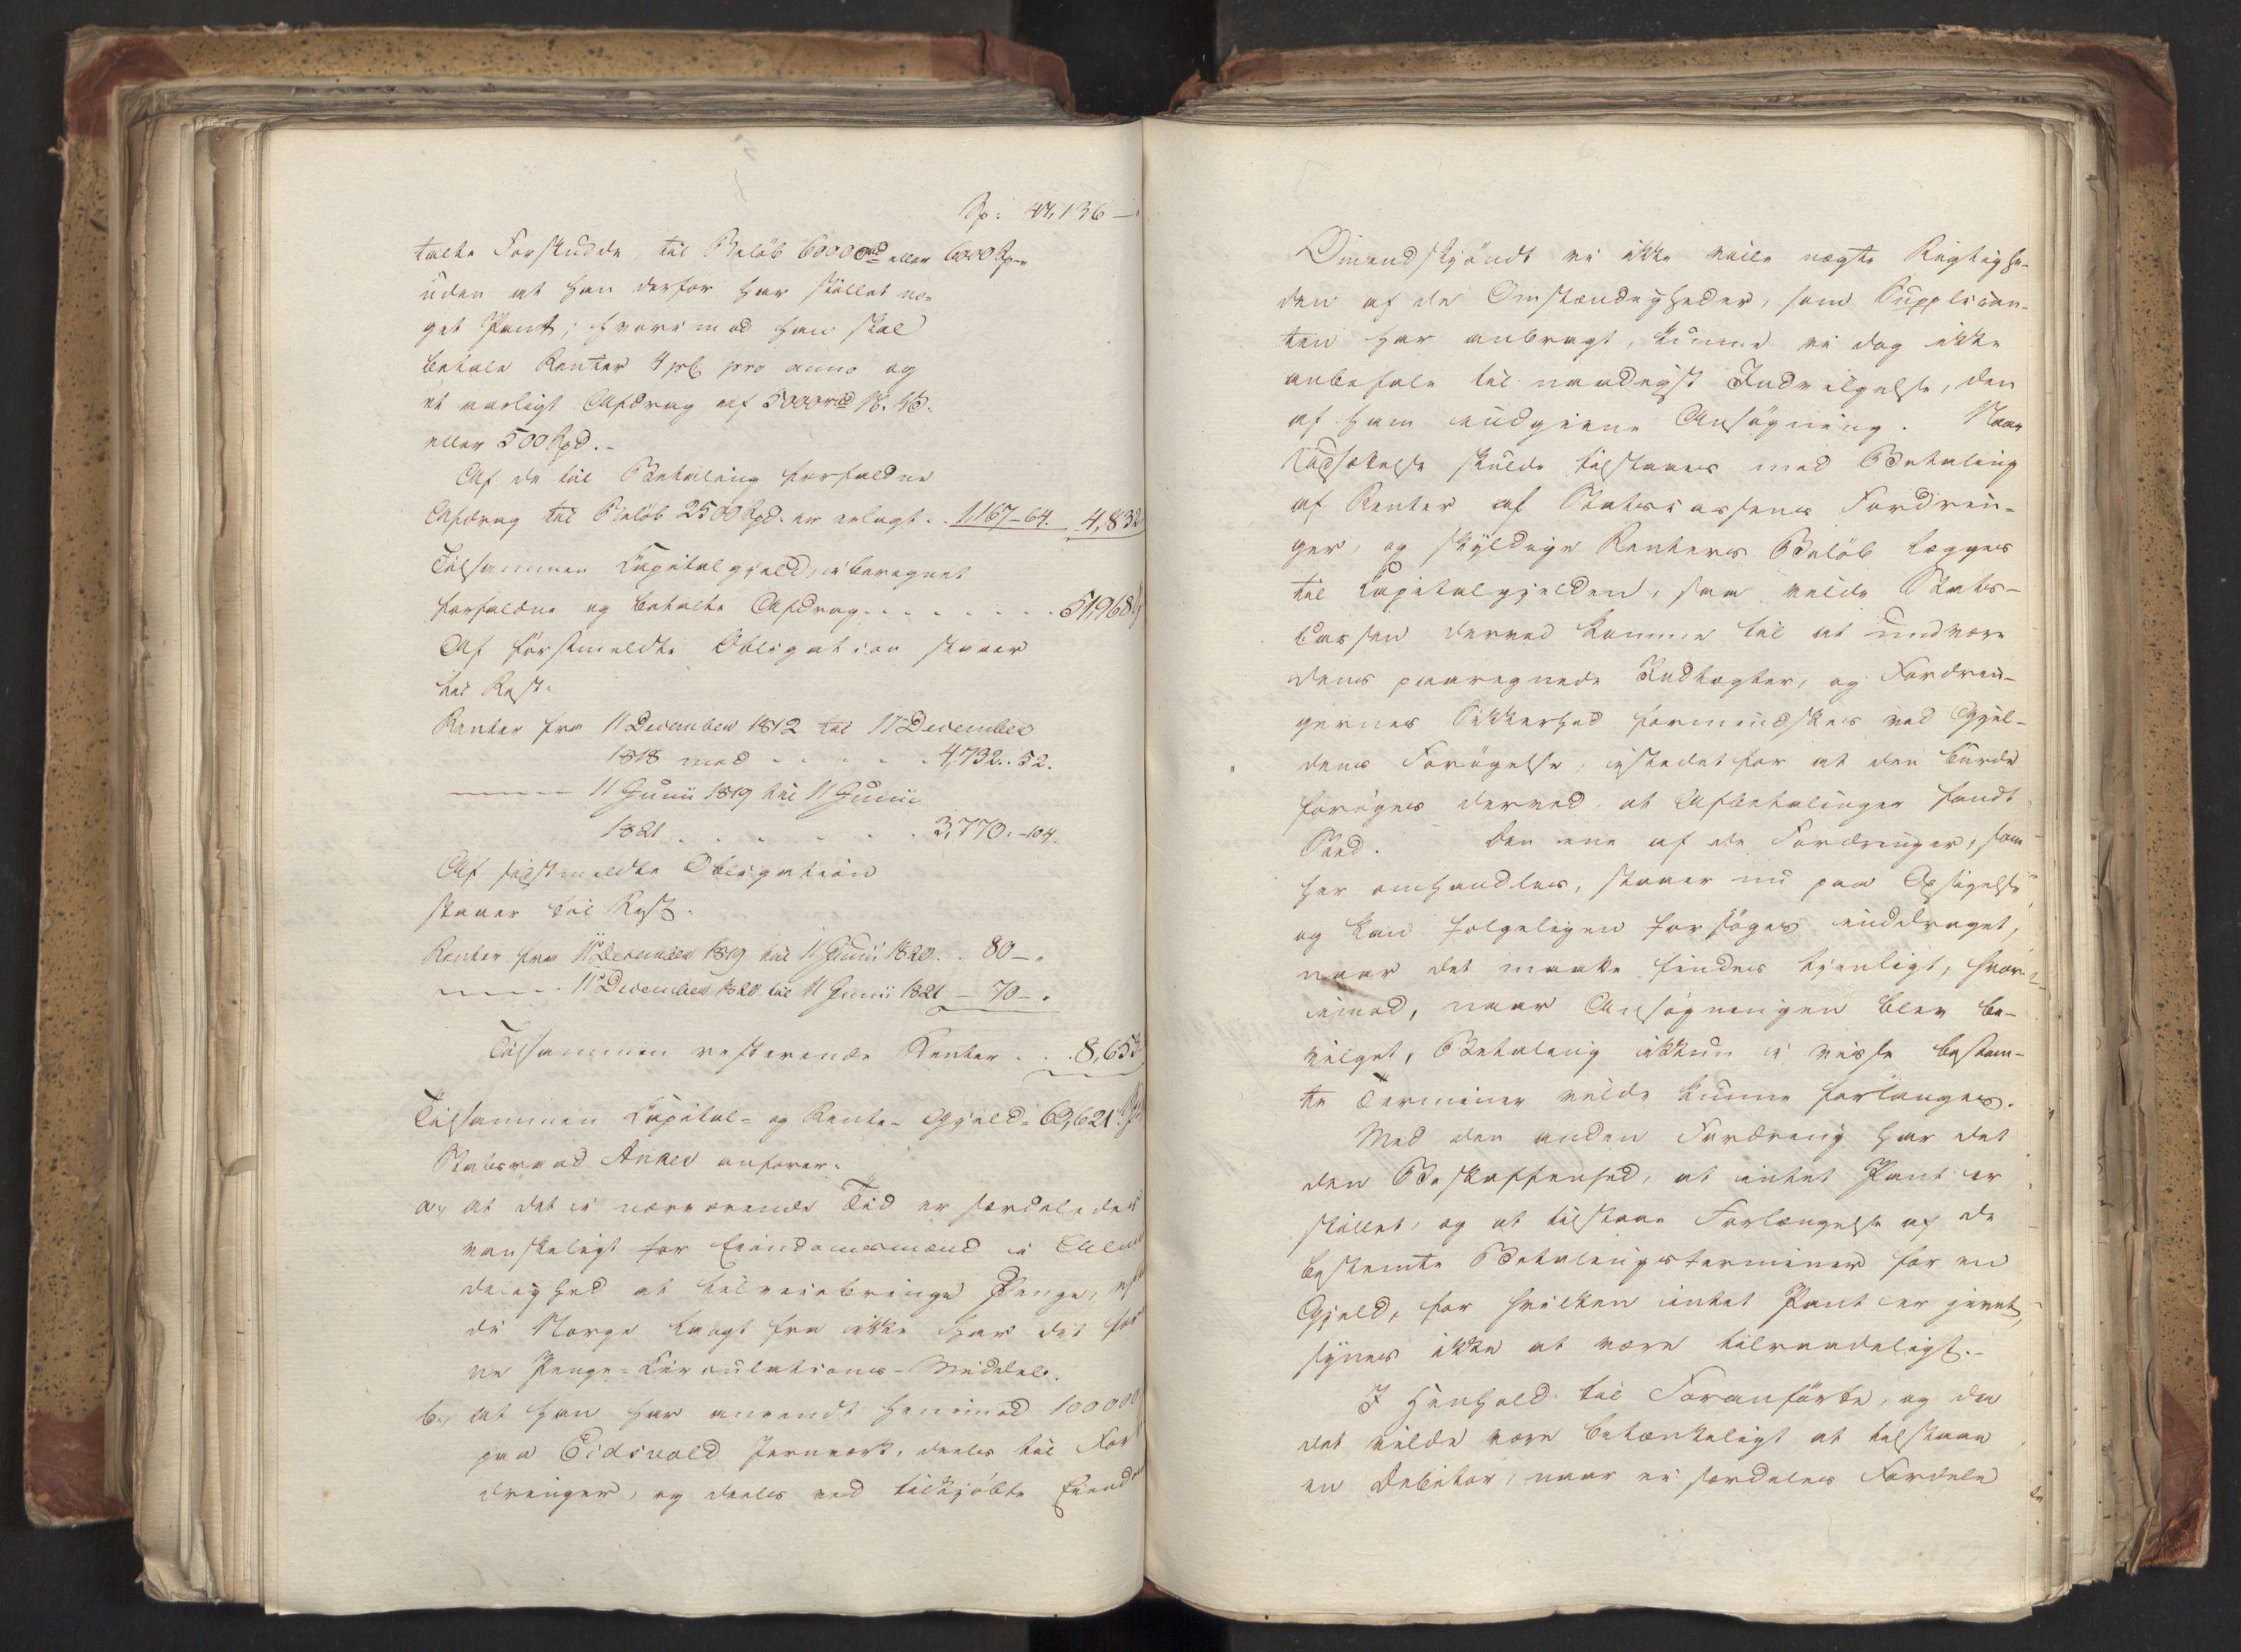 Sp: 47,136 —
talte Forskudde, til Beløb 60000 rbd eller 6000 Spd
uden at han derfor har stillet no-
get Pant; hvorimod han skal
betale Renter 4 pCt pro anno og
et aarligt Afdrag af 5000 rbd N. V.
eller 500 Spd. -
Af de til Betaling forfaldne
Afdrag til Beløb 2500 Spd. er erlagt . . 1167-64. 4,832
Tilsammen Capitalgjæld, iberegnet
forfaldne og betalte Afdrag . . . . . . . . 51,968
Af førstmeldte Obligation staaer
til Rest:
Renter fra 11 December 1812 til 11 December
1818 med . . . . . 4,732..52.
——— 11 Junii 1819 til 11 Junii
1821 . . . . . . 3,770:-104.
Af sidstmeldte Obligation
staaer til Rest:
Renter fra 11 December 1819 til 11 Junii 1820 . . 80-.
——— 11 December 1820 til 11 Junii 1821 — 70-.
Tilsammen resterende Renter . . . 8,653
Tilsammen Capital- og Rente-Gjæld - 60,621
Statsraad Anker anfører:
a, at det i nærværende Tid er særdeles
vanskeligt for Eiendomsmænd i Almin
delighed at tilveiebringe Penge,
di Norge langt fra ikke har det
ne Penge-Circulations-Middel.
b, at han har anvendt henimod 100000
paa Eidsvold Jernværk, deels til For
dringer, og deels ved tilkjøbte Eiend
Omendskjøndt vi ikke ville nægte Rigtighe-
den af de Omstændigheder, som Supplican-
ten har anbragt, kunne vi dog ikke
anbefale til naadigst Indvilgelse, den
af ham indgivne Ansøgning. Naar
Udsættelse skulde tilstaaes med Betaling
af Renter af Statscassens Fordrin-
ger, og skyldige Renters Beløb lægges
til Capitalgjælden, saa vilde Stats-
Cassen derved komme til at undvære
dens paaregnede Indtægter, og Fordrin-
gernes Sikkerhed formindskes ved Gjæl-
dens Forøgelse, istedetfor at den burde
forøges derved, at Afbetalinger fandt
Sted. Den ene af de Fordringer, som
her omhandles, staaer nu paa Opsigelse
og kan følgeligen forsøges inddraget,
naar det maatte findes tjenligt, hvor-
imod, naar Ansøgningen blev be-
vilget, Betaling ikkun i visse bestem-
te Terminer vilde kunne forlanges.
Med den anden Fordring har det
den Beskaffenhed, at intet Pant er
stillet, og at tilstaae Forlængelse af de
bestemte Betalingsterminer for en
Gjæld, for hvilken intet Pant er givet,
synes ikke at være tilraadeligt. -
I Henhold til Foranførte, og da
det vilde være betænkeligt at tilstaae
en Debitor, naar ei særdeles Fordele